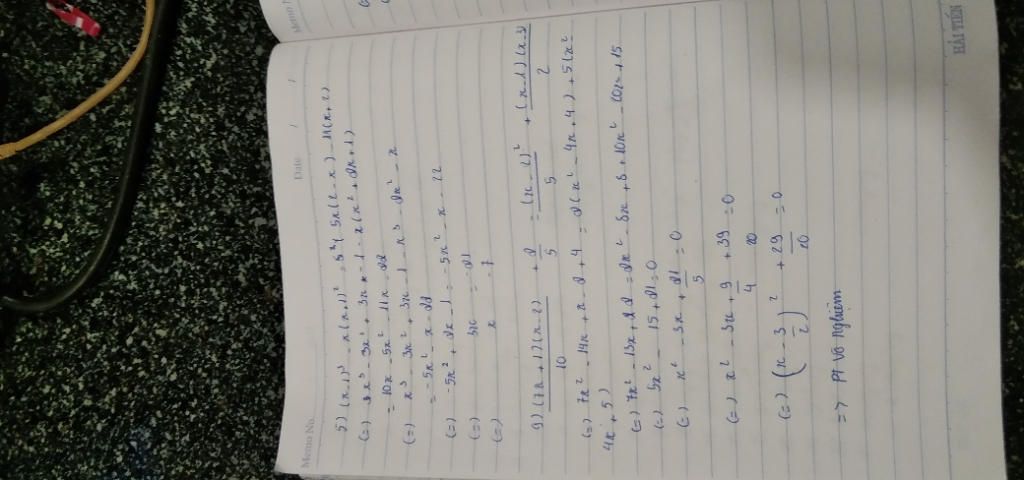 Memo No.
Date / /
5) (x-1)³ - x(x+1)² = 5x(2-x) - 11(x+2)
(=) x³ - 3x² + 3x - 1 - x(x² + 2x + 1)
= 10x - 5x² - 11x - 22
(=) x³ - 3x² + 3x - 1 - x³ - 2x² - x
= -5x² - x - 22
(=) -5x² + 2x - 1 = -5x² - x - 22
(=) 3x = -21
(=) x = -7
9) (7x+1)(x-2)/10 + 2/5 = (x-2)²/5 + (x-1)(x-3)/2
(=) 7x² - 14x + x - 2 + 4 = 2(x² - 4x + 4) + 5(x² -
4x + 5)
(=) 7x² - 13x + 2 = 2x² - 8x + 8 + 10x² - 20x + 15
(=) 5x² - 15 + 21 = 0
(=) x² - 3x + 21/5 = 0
(=) x² - 3x + 9/4 + 39/20 = 0
(=) (x - 3/2)² + 29/20 = 0
=> PT vô nghiệm
HẢI TIẾN